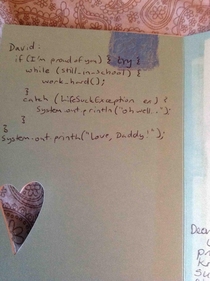 David:
if (I'm proud of you) { try
while (still_in_school) {
work_hard();
}
catch (LifeSuckException ex) {
System.out.println("oh well..");
}
}
System.out.println("Love, Daddy!");
Dea